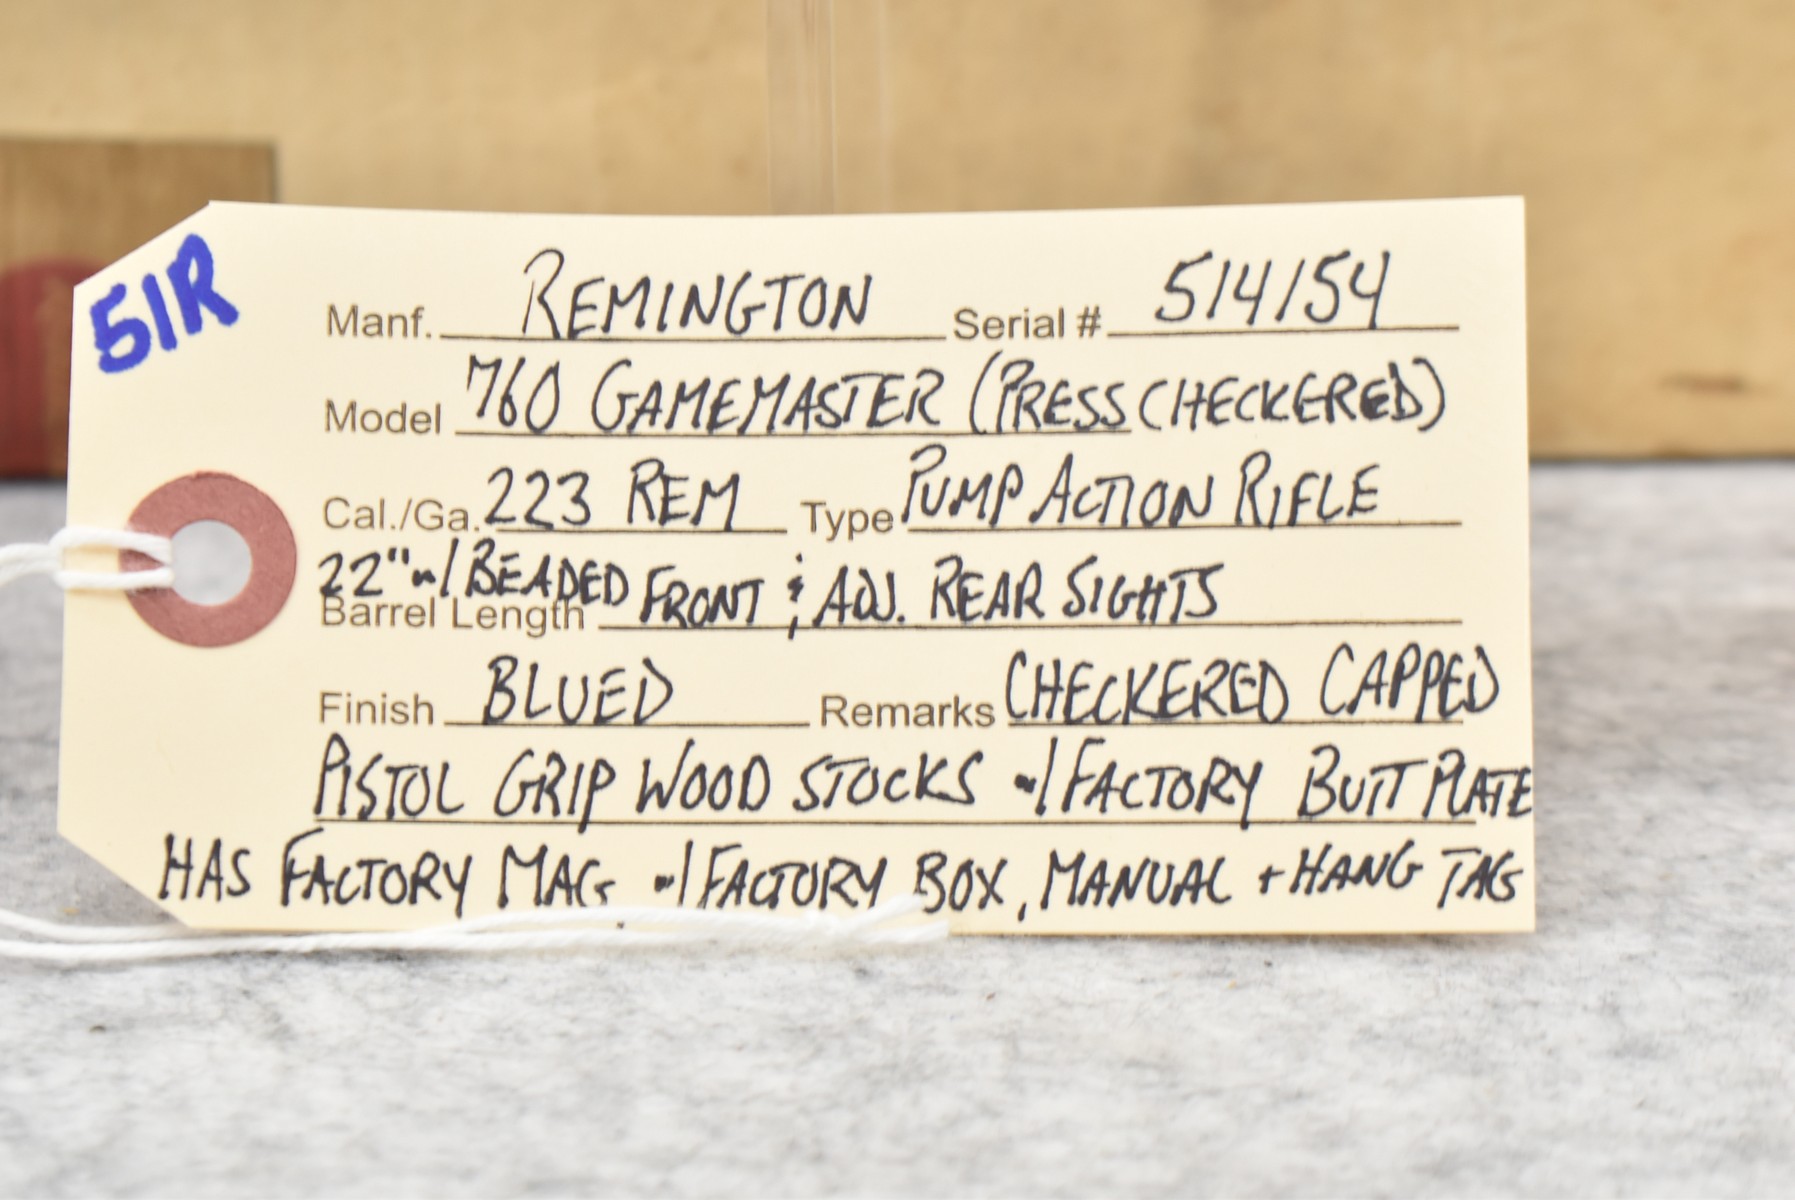 51R
Manf. REMINGTON Serial # 514154
Model 760 GAMEMASTER (PRESS CHECKERED)
Cal./Ga. 223 REM Type PUMP ACTION RIFLE
22" w/ BEADED FRONT & ADJ. REAR SIGHTS
Barrel Length
Finish BLUED Remarks CHECKERED CAPPED
PISTOL GRIP WOOD STOCKS w/ FACTORY BUTT PLATE
HAS FACTORY MAG w/ FACTORY BOX, MANUAL + HANG TAG